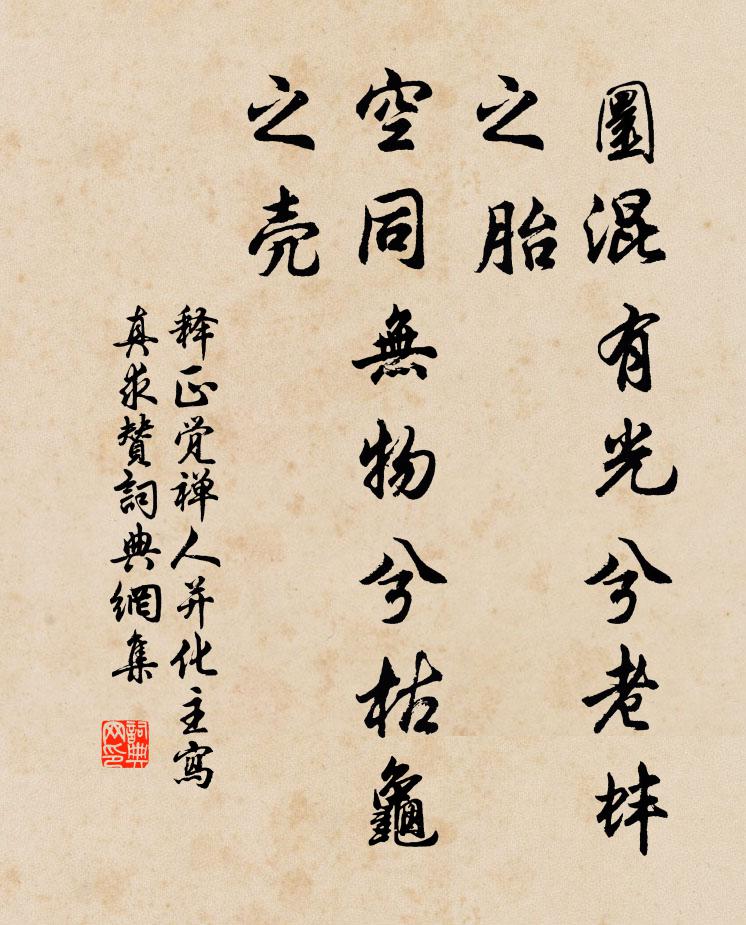 混有光兮老蚌
之胎
空同無物兮枯龜
之壳
释正觉禅人并化主寫
真求賛詞典網集
詞典
网印